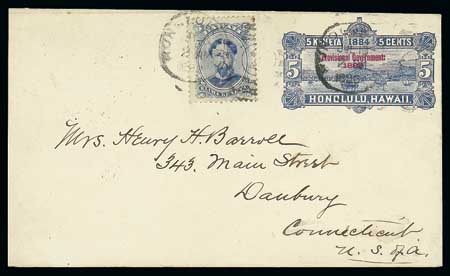 5 KENETA 1884 5 CENTS
Provisional Government
1893
5 5
HONOLULU, HAWAII.
Mrs. Henry H. Barroll
343 Main Street
Danbury
Connecticut
U. S. of A.